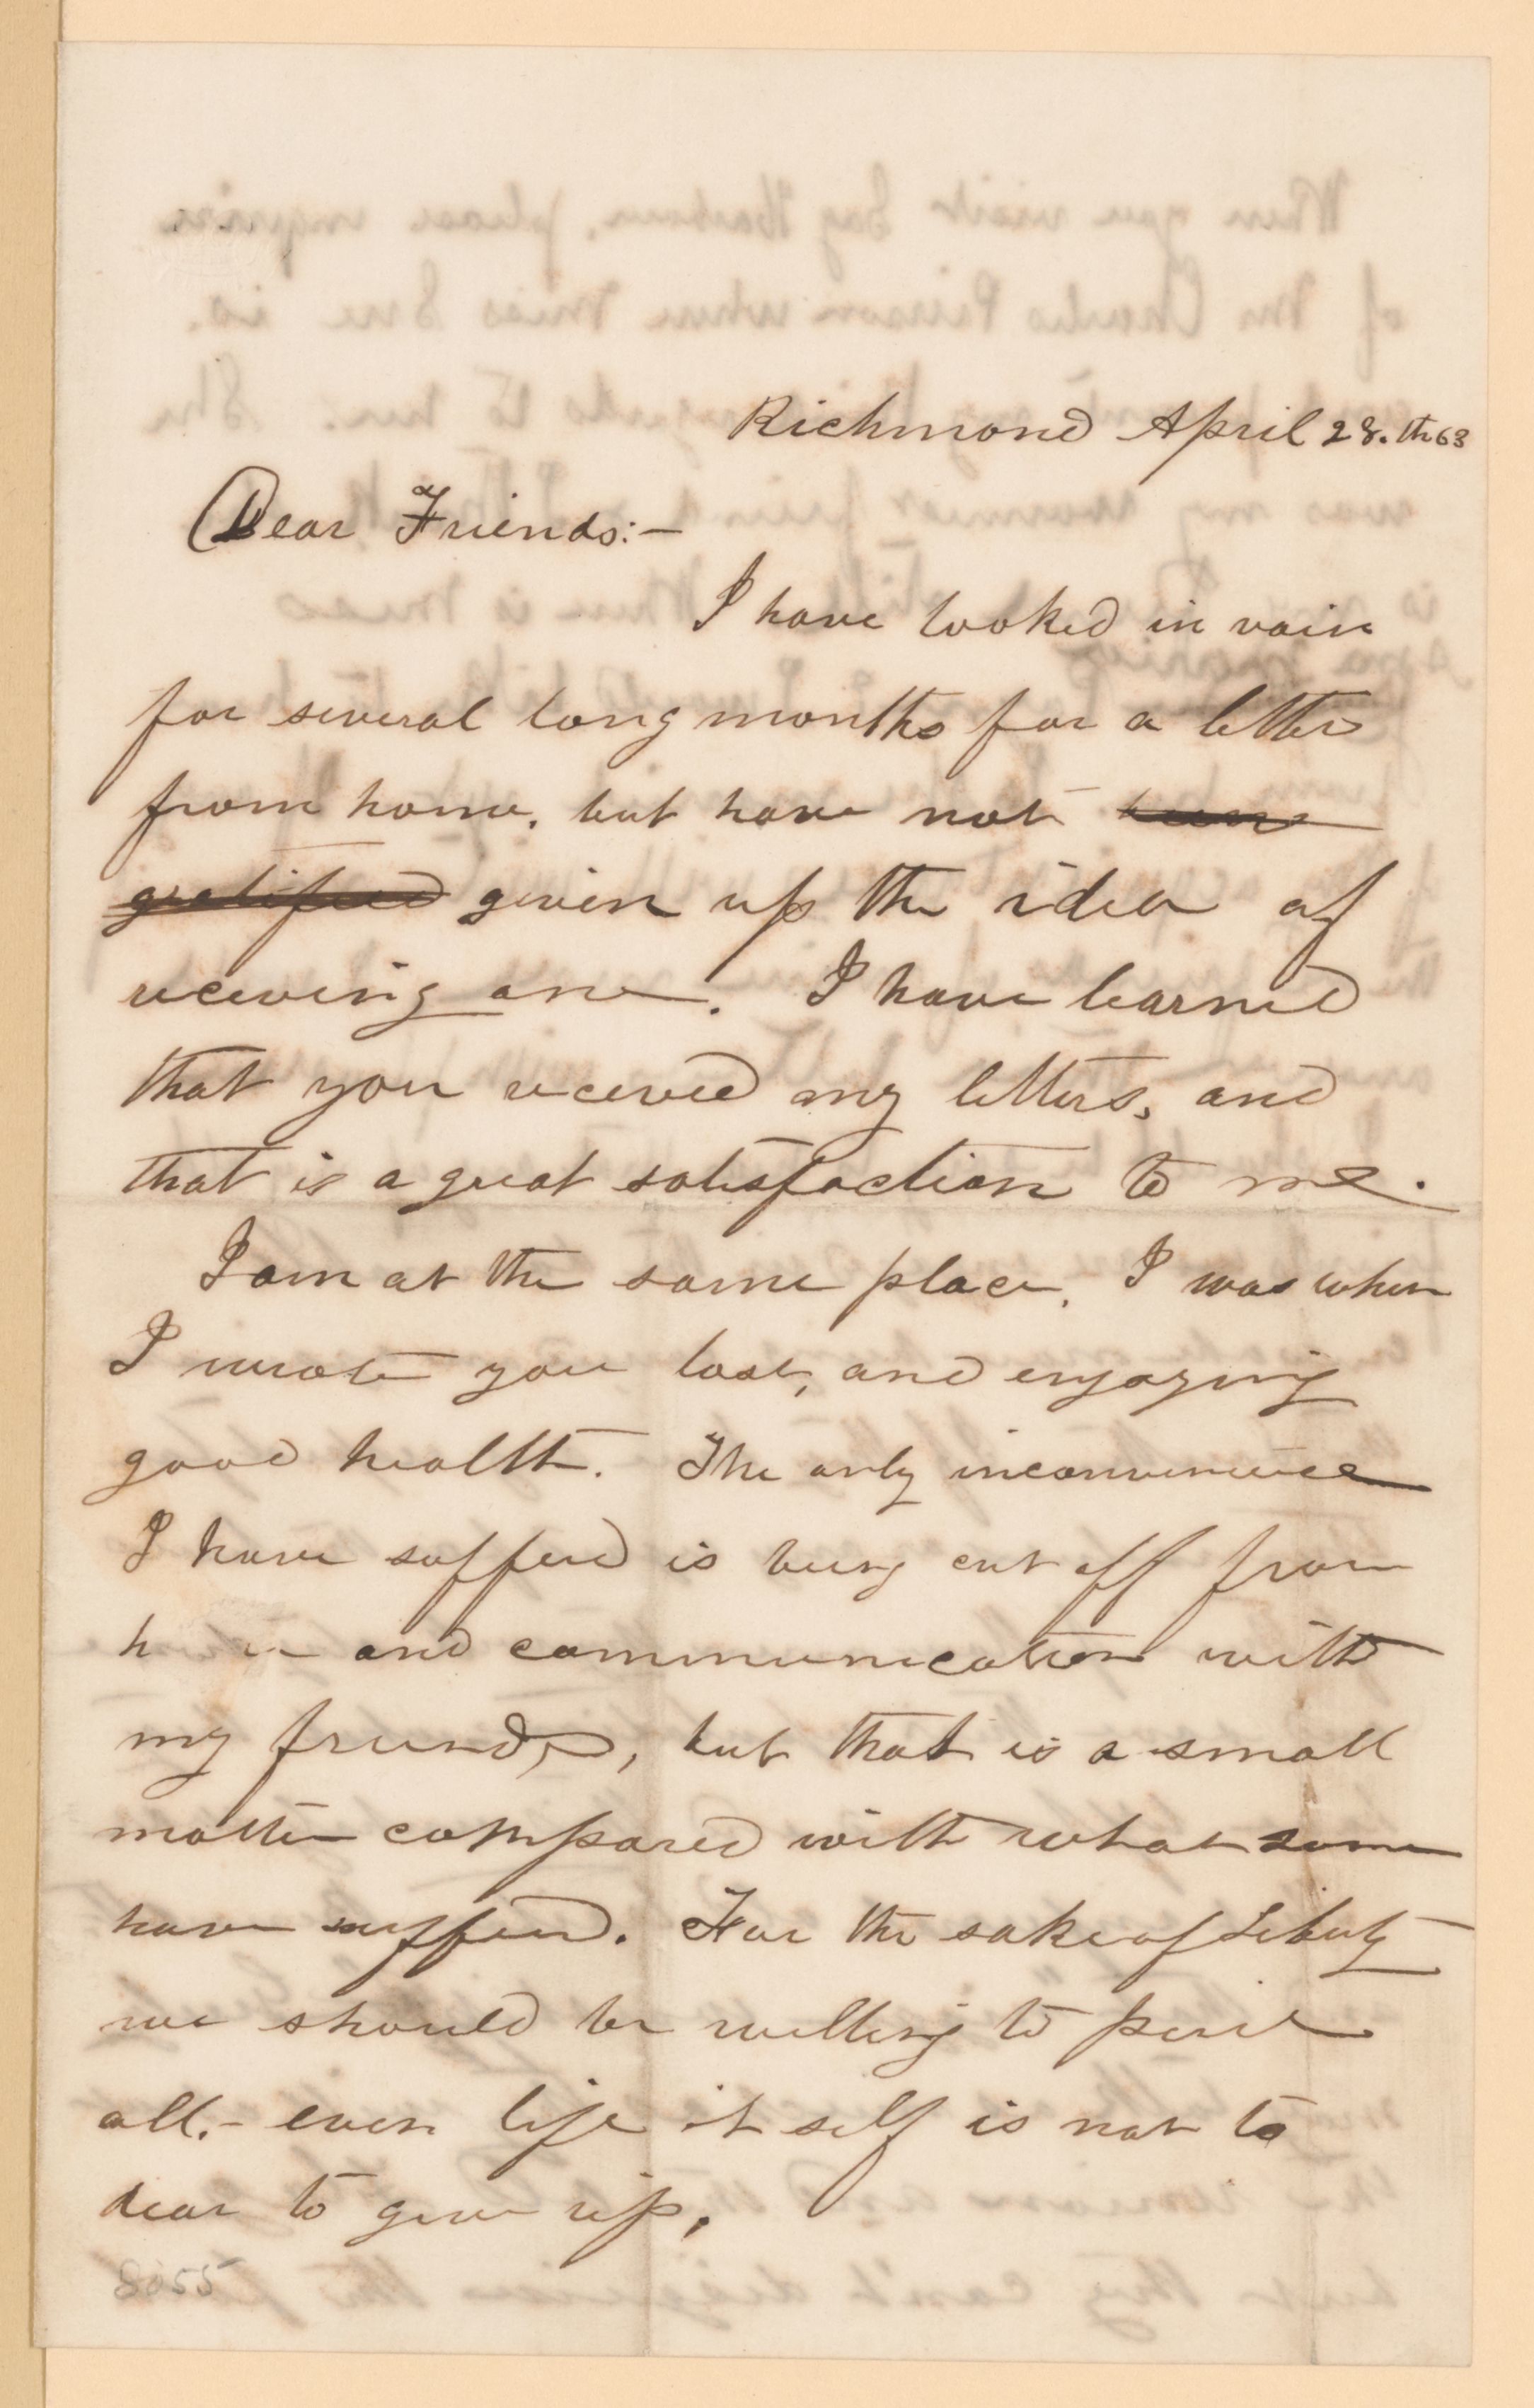 Richmond April 28.th 63
Dear Friends:-
I have looked in vain
for several long months for a letter
from home, but have not been
gratified given up the idea of
receiving one. I have learned
that you received my letters, and
that is a great satisfaction to me.
I am at the same place, I was when
I wrote you last, and enjoying
good health. The only inconvenience
I have suffered is being cut off from
and communication with
my friends, but that is a small
matter compared with what some
have suffered. For the sake of Liberty
we should be willing to peril
all,- even life it self is not to
dear to give up.
8055